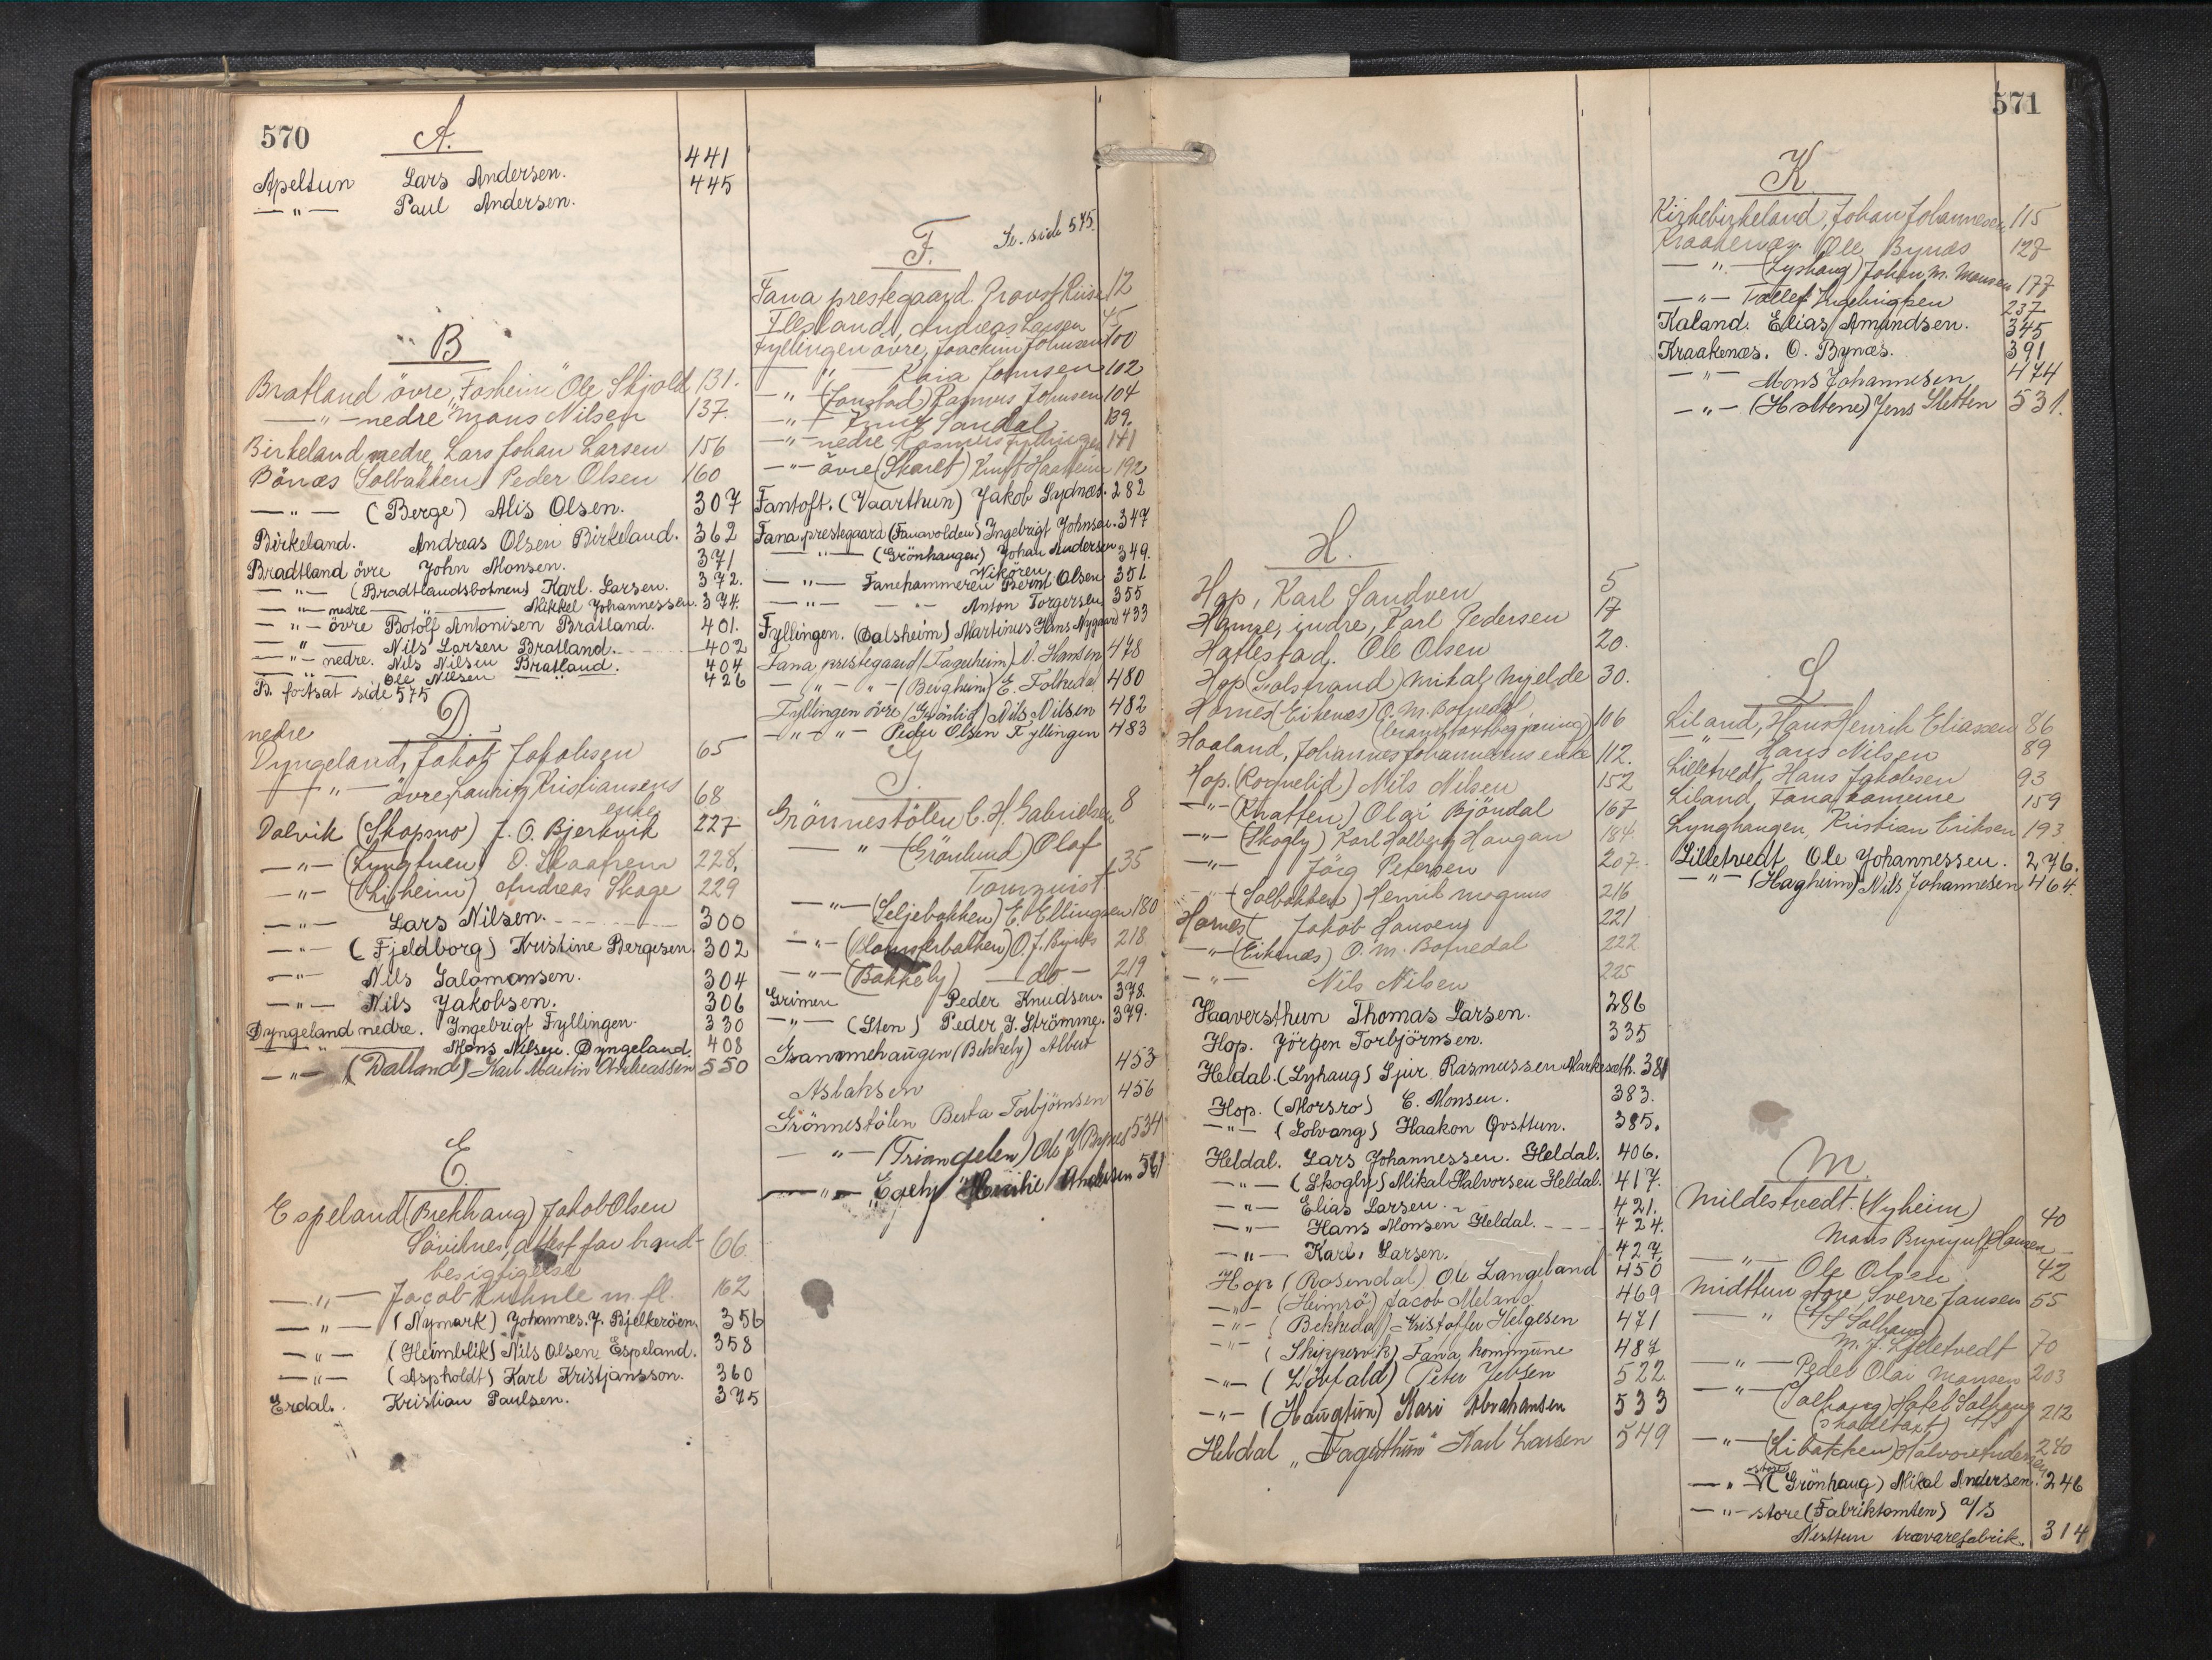 570
A.
Apeltun Lars Andersen. 441
— " — Paul Andersen. 445
B
Bratland övre, "Fosheim" Ole Skjold 131.
— " — nedre Mons Nilsen 137.
Birkeland nedre, Lars Johan Larsen 156
Bönæs (Solbakken) Peder Olsen 160
— " — (Berge) Alis Olsen. 307
Birkeland. Andreas Olsen Birkeland. 362
Bradtland övre John Monsen. 371
— " — (Bradtlandsbotnen) Karl. Larsen. 372.
— " — nedre — " — Mikkel Johannessen. 374.
— " — övre Botolf Antonisen Bratland. 401.
— " — Nils Larsen Bratland. 402
— " — nedre. Nils Nilsen Bratland. 404
— " — Ole Nilsen — " — 426
B. fortsat side 575
D.
nedre
Dyngeland, Jakob Jakobsen 65
— " — övre Lauritz Kristiansens
enke 68
Dalvik (Skopmo) J. O. Bjerkvik 227
— " — (Lyngtuen) O. Skaatrem 228.
— " — (Lisheim) Andreas Skage 229
— " — Lars Nilsen. 300
— " — (Fjeldborg) Kristine Bergesen. 302
— " — Nils Salamonsen. 304
— " — Nils Jakobsen. 306
Dyngeland nedre. Ingebrigt Fyllingen. 330
— " — Mons Nilsen. Dyngeland. 408
— " — (Dalland) Karl Martin Andreassen 550
E.
Espeland (Brekhaug) Jakob Olsen
Sövitnes, attest for brand- 66.
besigtigelse
— " — Jacob Kuhnle m. fl. 162
— " — (Nymark) Johannes. J. Bjelkeröen. 356
— " — (Heimblik) Nils Olsen Espeland. 358
— " — (Aspholdt) Karl Kristjansson. 360
Erdal. Kristian Paulsen. 375
F.
Se. side 575.
Fana prestegaard. Provst Riise 12
Flesland, Andreas Larsen 45
Fyllingen övre, Joachim Johnsen 100
— " — Kaia Johnsen 102
— " — (Fonstad) Rasmus Johnsen 104
— " — Sandal 139.
— " — nedre Rasmus Fyllingen 141
— " — övre (Skaret) Knut Haaheim 192
Fantoft. (Vaarthun) Jakob Sydnæs. 282
Fana prestegaard (Fanavolden) Ingebrigt Johnsen. 347
— " — (Grönhaugen) Johan Andersen 349.
Nikören
— " — Fanehammeren Bernt Olsen 351.
— " — — " — Anton Torgersen 355
Fyllingen. (Dalsheim) Martinus Hans. Nygaard 433
Fana prestegaard (Fagerheim) N. Hansen 478
— " — " — (Bergheim) E. Folkedal 480
Fyllingen övre (Grönlid) Nils Nilsen 482
— " — " — Peder Olsen Fyllingen 483
G.
Grönnestölen C. H. Gabrielsen 8
— " — (Grönlund) Olaf
Tornquist 135
— " — (Seljebakken) E. Ellingsen 180
— " — (Blomsterbakken) O. J. Bynæs 218
— " — (Bakkely) — do — 219
Grimen Peder Knudsen. 378.
— " — (Sten) Peder J. Strömme. 379.
Grannnehaugen (Bekkely) Albert 453
Aslaksen 456
Grönnestölen Berta Torbjörnsen
— " — (Triangelen) Ole J Bynes 534
— " — "Egely" Emilie Andersen 561
571
H.
Hop, Karl Sandven 5
Hamre, indre, Karl Pedersen 17
Hatlestad. Ole Olsen 20.
Hop (Solstrand) Mikal Mjelde 30.
Hornes (Eikenæs) O. M. Bofnedal
(brandtaxtbegjæring) 106
Haaland, Johannes Johannesens enke 112.
Hop. (Rognelid) Nils Nilsen 152
— " — (Knatten) Olai Bjöndal 167
— " — (Skogly) Karl Holberg Haugan 184.
— " — Jörg Petersen 207.
— " — (Solbakken) Henrik Magnus 216
Hornes Jakob Hansen 221
— " — (Eikenæs) O. M. Bofnedal 222
— " — Nils Nilsen 225
Haaversthun Thomas Larsen. 286
Hop. Jörgen Torbjörnsen. 335
Heldal. (Lyhaug) Sjur Rasmussen Markeseth. 381
Hop. (Morsro) E. Monsen. 383.
— " — (Solvang) Haakon Qvsttun. 385.
Heldal. Lars Johannessen. Heldal. 406.
— " — (Skogly) Mikal Halvorsen Heldal. 417.
— " — Elias Larsen. 421.
— " — Hans Monsen Heldal. 424.
— " — Karl. Larsen. 427.
Hop (Rosendal) Ole Langeland 450
— " — (Heimrö) Jacob Meland 469
— " — (Bekkedal) Kristoffer Helgesen 471
— " — (Skippervik) Fana kommune 487
— " — (Lövfald) Peter Jebsen 522
— " — (Haugtun) Kari Abrahamsen 533
Heldal "Fagerthun" Karl Larsen 549
K
Kirkebirkeland, Johan Johannesen 115
Kraakenæs. Ole Bynæs 128
— " — (Lyshaug) Johan M. Monsen 177
— " — Tollef Ingebrigtsen 237
Kaland. Elias Amundsen. 345
Kraakenæs. O. Bynæs. 391
— " — Mons Johannesen 474
— " — (Holtene) Jens Sletten 531.
L
Liland, Hans Henrik Eliassen 86
— " — Hans Nilsen 89
Lilletvedt, Hans Jakobsen 93
Liland, Fana komune 159
Lynghaugen, Kristian Eriksen 193
Lilletvedt, Ole Johannessen. 276.
— " — (Hagheim) Nils Johannesen 464.
M
Mildestvedt. (Nyheim)
Mons Brynjulf Hansen 40
— " — Ole Olsen 42
Midttun store, Sverre Jansen 55
— " — (A/S Solhaug)
M. J. Lilletvedt 70
— " — Peder Olai Monsen 203
— " — (Solhaug) Hotel Solhaug
(skadetaxt) A/S 212
— " — (Libakken) Halvor Andersen 240
— " — store (Grönhaug) Mikal Andersen. 246
— " — store (Fabriktomten) a/s
Nesttun trævarefabrik. 314